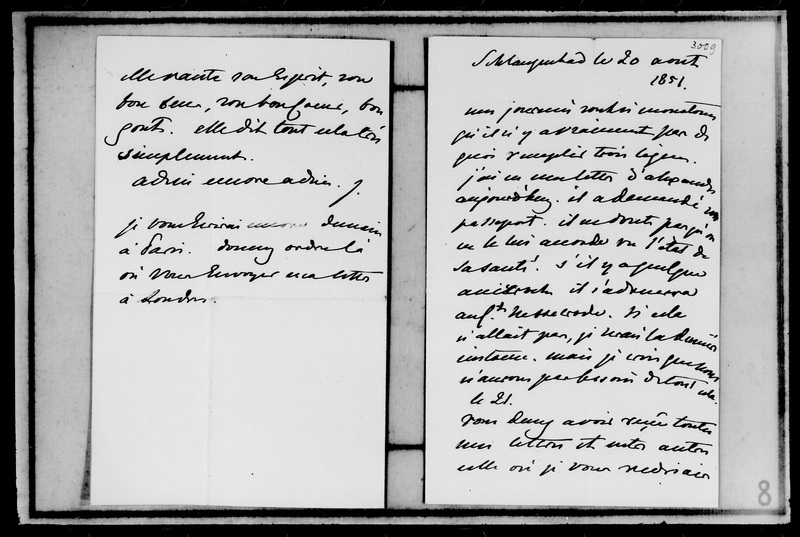 elle vante son Esprit, son
bon sens, son bon coeur, bon
gout. elle dit tout cela très
simplement.
adieu encore adieu. J.
je vous Ecrirai encore demain
à Paris. donnez ordre là
où vous Envoyer ma lettre
à Londres.
3009
Schlangenbad le 20 aout
1851.
mes journées sont si monotones
qu'il n'y a vraiment pas de
quoi remplir trois lignes.
j'ai eu une lettre d'alexandre
aujourd'hui. il a demandé son
passeport. il ne doute pas qu'on
ne le lui accorde vu l'état de
sa santé. s'il y a quelque
anicroche il s'adressera
au Cte Nesselrode. si cela
n'allait pas, je serai la dernière
instance. mais je crois que nous
n'aurons pas besoin de tout cela.
le 21.
vous devez avoir reçu toutes
mes lettres et entre autres
celle où je vous
8